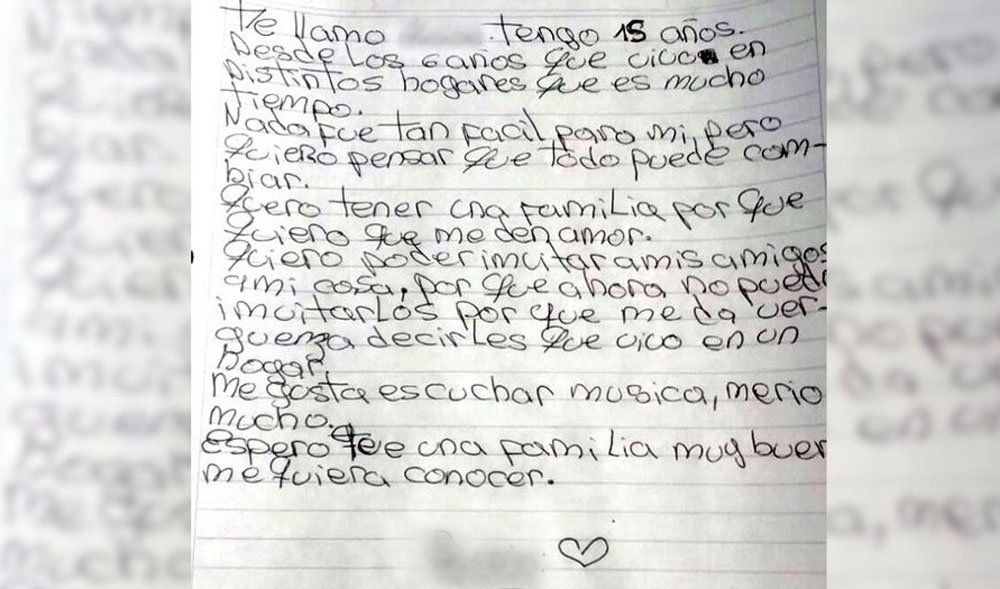 Me llamo tengo 15 años.
Desde los 6 años que vivo en
Distintos hogares que es mucho
tiempo.
Nada fue tan facil para mi, pero
quiero pensar que todo puede cam-
biar.
Quero tener una familia por que
quiero que me den amor.
quiero poder imvitar a mis amigos
a mi casa, por que ahora no puedo
imvitarlos por que me da ver-
guenza decirles que vivo en un
hogar.
Me gusta escuchar musica, me rio
mucho.
espero que una familia muy buen
me quiera conocer.